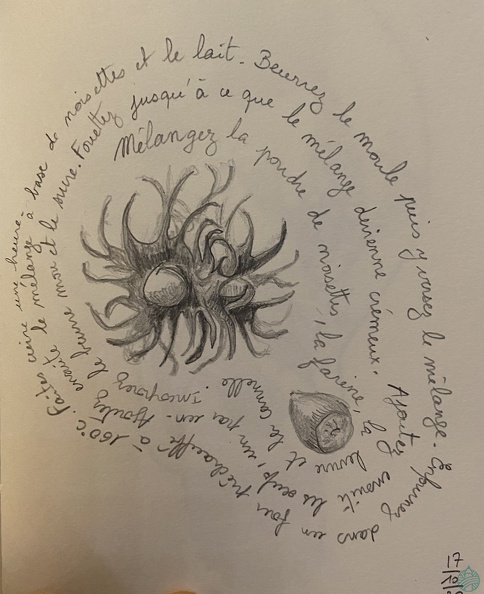 Mélangez la poudre de noisettes, la farine, la levure et la cannelle. Incorporez le beurre mou et le sucre. Fouettez jusqu'à ce que le mélange devienne crémeux. Ajoutez ensuite les oeufs, un par un. Ajoutez ensuite le mélange à base de noisettes et le lait. Beurrez le moule puis y versez le mélange. Enfournez dans un four préchauffé à 160°C. Faites cuire une heure.
17
10